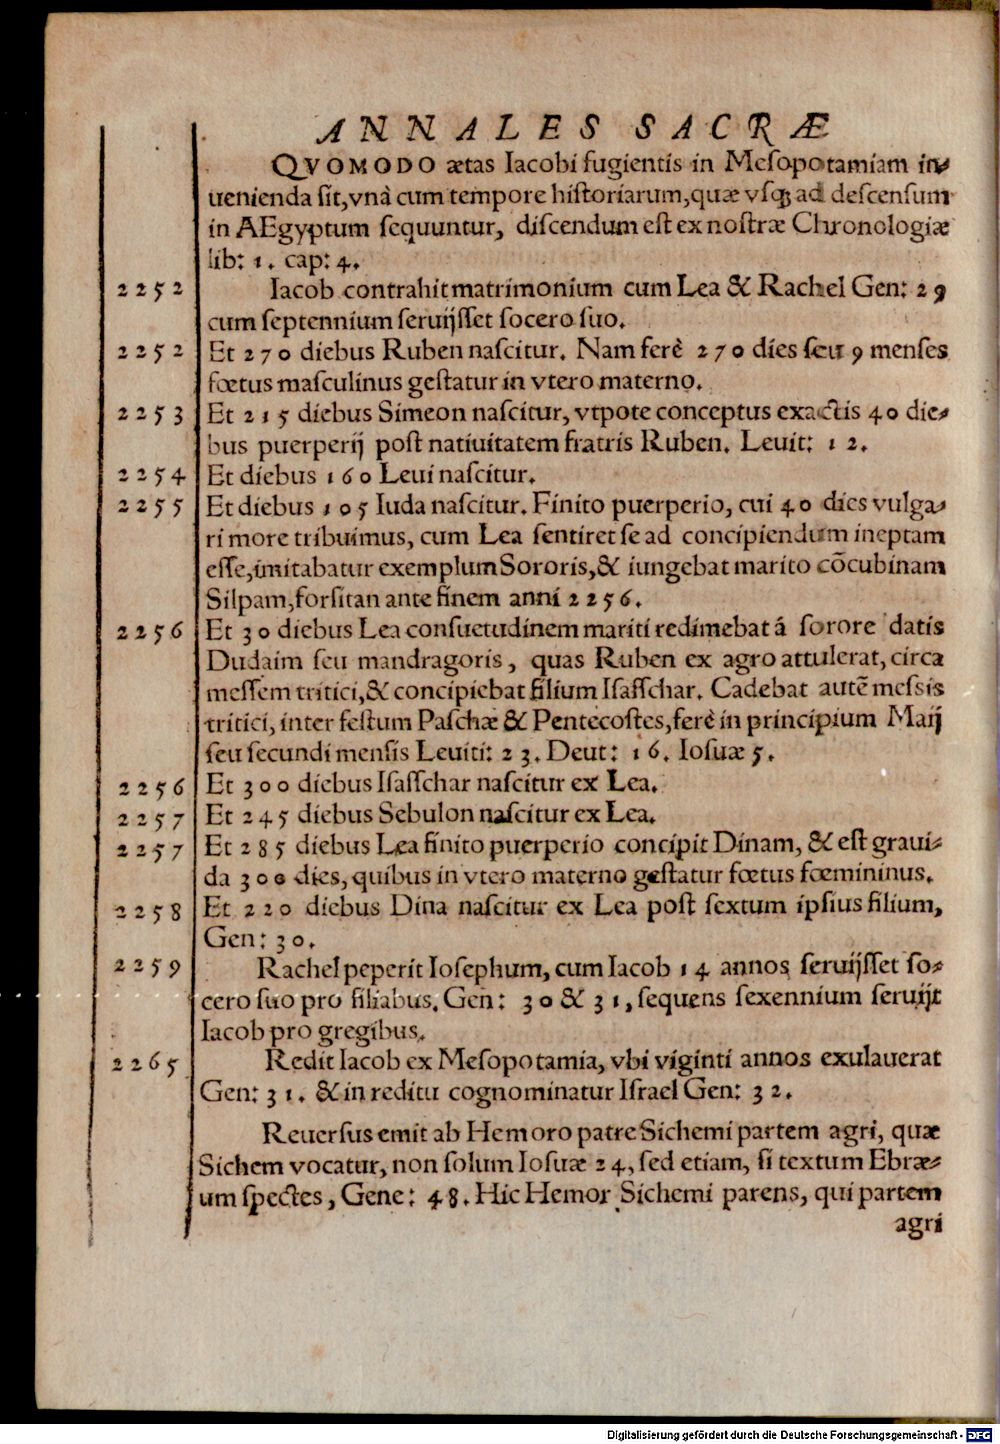 ANNALES SACRÆ
QVOMODO ætas Iacobi fugientis in Mesopotamiam in⸗
uenienda sit, vnà cum tempore historiarum, quæ vsq; ad descensum
in AEgyptum sequuntur, discendum est ex nostræ Chronologiæ
lib: 1. cap: 4.
2252 Iacob contrahit matrimonium cum Lea & Rachel Gen: 29
cum septennium seruijsset socero suo.
2252 Et 270 diebus Ruben nascitur. Nam ferè 270 dies seu 9 menses
fœtus masculinus gestatur in vtero materno.
2253 Et 215 diebus Simeon nascitur, vtpote conceptus exactis 40 die⸗
bus puerperij post natiuitatem fratris Ruben. Leuit: 12.
2254 Et diebus 160 Leui nascitur.
2255 Et diebus 105 Iuda nascitur. Finito puerperio, cui 40 dies vulga⸗
ri more tribuimus, cum Lea sentiret se ad concipiendum ineptam
esse, imitabatur exemplum Sororis, & iungebat marito cōcubinam
Silpam, forsitan ante finem anni 2256.
2256 Et 30 diebus Lea consuetudinem mariti redimebat á sorore datis
Dudaim seu mandragoris, quas Ruben ex agro attulerat, circa
messem tritici, & concipiebat filium Isasschar. Cadebat autē messis
tritici, inter festum Paschæ & Pentecostes, ferè in principium Maij
seu secundi mensis Leuiti: 23. Deut: 16. Iosuæ 5.
2256 Et 300 diebus Isasschar nascitur ex Lea.
2257 Et 245 diebus Sebulon nascitur ex Lea.
2257 Et 285 diebus Lea finito puerperio concipit Dinam, & est graui⸗
da 300 dies, quibus in vtero materno gestatur fœtus fœmininus.
2258 Et 220 diebus Dina nascitur ex Lea post sextum ipsius filium,
Gen: 30.
2259 Rachel peperit Iosephum, cum Iacob 14 annos seruijsset so⸗
cero suo pro filiabus. Gen: 30 & 31, sequens sexennium seruijt
Iacob pro gregibus.
2265 Redit Iacob ex Mesopotamia, vbi viginti annos exulauerat
Gen: 31. & in reditu cognominatur Israel Gen: 32.
Reuersus emit ab Hemoro patre Sichemi partem agri, quæ
Sichem vocatur, non solum Iosuæ 24, sed etiam, si textum Ebræ⸗
um spectes, Gene: 48. Hic Hemor Sichemi parens, qui partem
agri
Digitalisierung gefördert durch die Deutsche Forschungsgemeinschaft - DFG